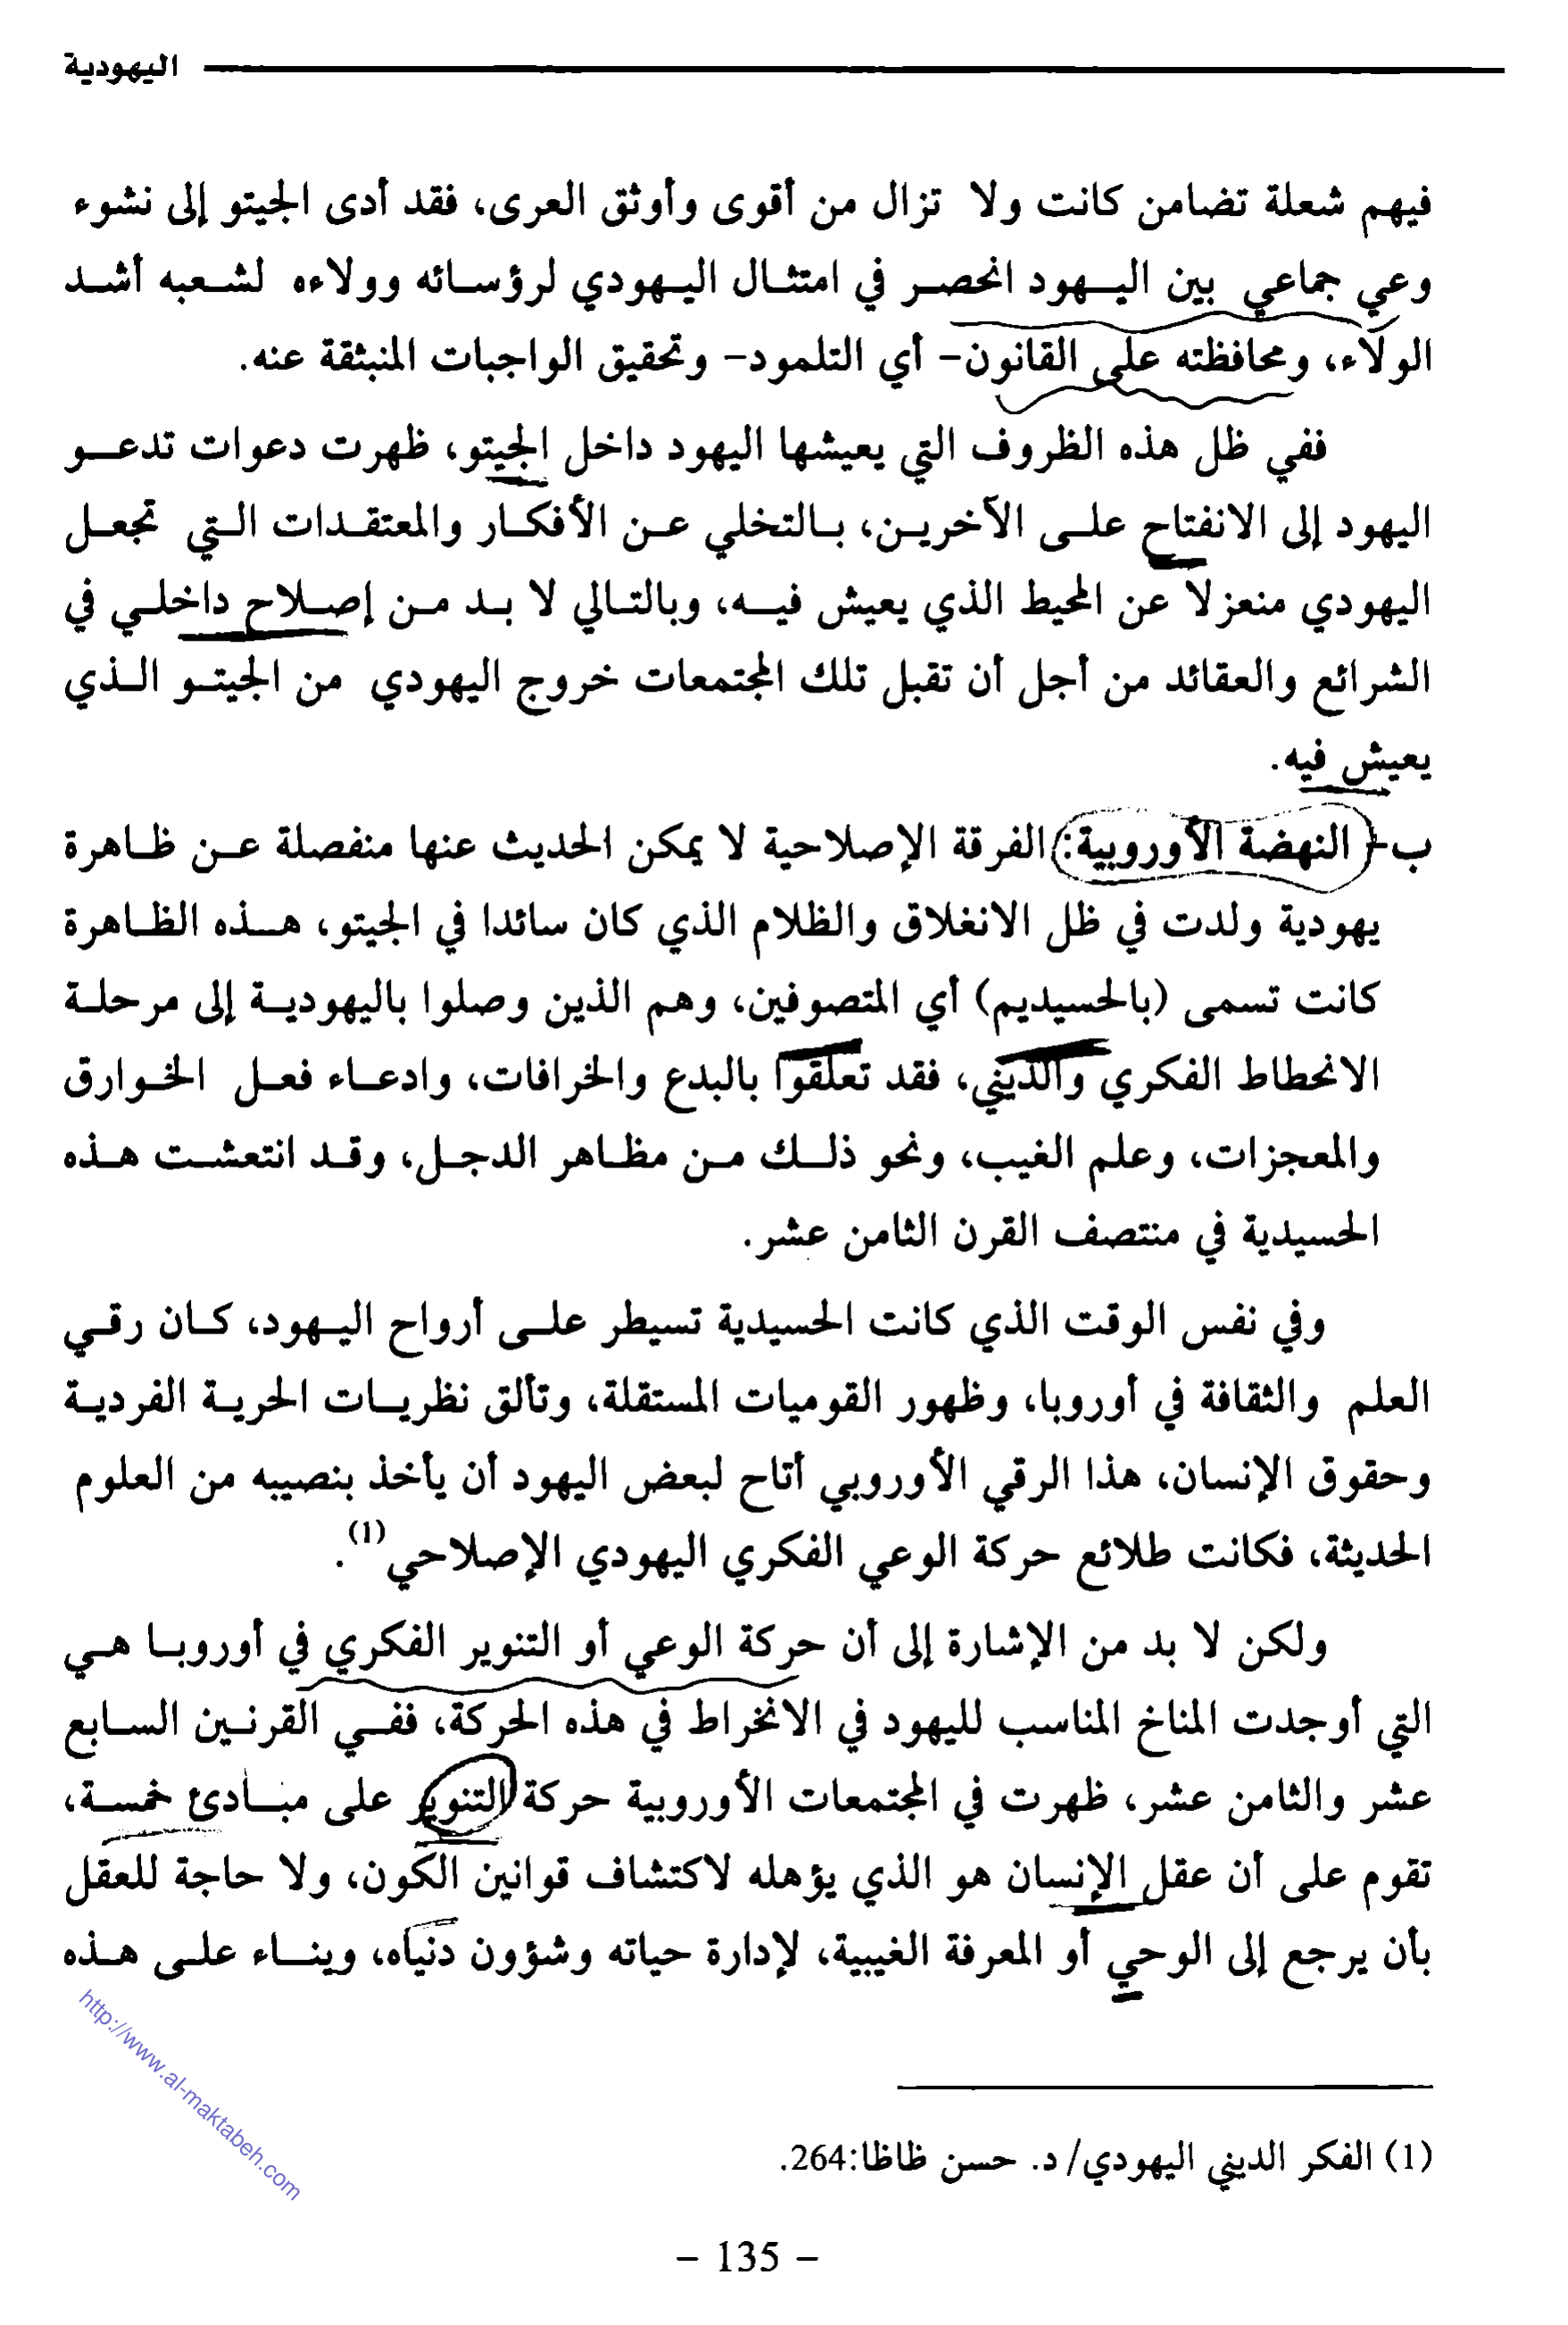 اليهودية
فيهم شعلة تضامن كانت ولا تزال من أقوى وأوثق العرى، فقد أدى الجيتو إلى نشوء
وعي جماعي بين اليهود انحصر في امتثال اليهودي لرؤسائه وولاءه لشعبه أشد
الولاء، ومحافظته على القانون- أي التلمود- وتحقيق الواجبات المنبثقة عنه.
ففي ظل هذه الظروف التي يعيشها اليهود داخل الجيتو، ظهرت دعوات تدعو
اليهود إلى الانفتاح على الآخرين، بالتخلي عن الأفكار والمعتقدات التي تجعل
اليهودي منعزلا عن المحيط الذي يعيش فيه، وبالتالي لا بد من إصلاح داخلي في
الشرائع والعقائد من أجل أن تقبل تلك المجتمعات خروج اليهودي من الجيتو الذي
يعيش فيه.
ب- النهضة الأوروبية: الفرقة الإصلاحية لا يمكن الحديث عنها منفصلة عن ظاهرة
يهودية ولدت في ظل الانغلاق والظلام الذي كان سائدا في الجيتو، هذه الظاهرة
كانت تسمى (بالحسيديم) أي المتصوفين، وهم الذين وصلوا باليهودية إلى مرحلة
الانحطاط الفكري والديني، فقد تعلقوا بالبدع والخرافات، وادعاء فعل الخوارق
والمعجزات، وعلم الغيب، ونحو ذلك من مظاهر الدجل، وقد انتعشت هذه
الحسيدية في منتصف القرن الثامن عشر.
وفي نفس الوقت الذي كانت الحسيدية تسيطر على أرواح اليهود، كان رقي
العلم والثقافة في أوروبا، وظهور القوميات المستقلة، وتألق نظريات الحرية الفردية
وحقوق الإنسان، هذا الرقي الأوروبي أتاح لبعض اليهود أن يأخذ بنصيبه من العلوم
الحديثة، فكانت طلائع حركة الوعي الفكري اليهودي الإصلاحي(1).
ولكن لا بد من الإشارة إلى أن حركة الوعي أو التنوير الفكري في أوروبا هي
التي أوجدت المناخ المناسب لليهود في الانخراط في هذه الحركة، ففي القرنين السابع
عشر والثامن عشر، ظهرت في المجتمعات الأوروبية حركة التنوير على مبادئ خمسة،
تقوم على أن عقل الإنسان هو الذي يؤهله لاكتشاف قوانين الكون، ولا حاجة للعقل
بأن يرجع إلى الوحي أو المعرفة الغيبية، لإدارة حياته وشؤون دنياه، وبناء على هذه
http://www.al-maktabeh.com
(1) الفكر الديني اليهودي/ د. حسن ظاظا:264.
- 135 -